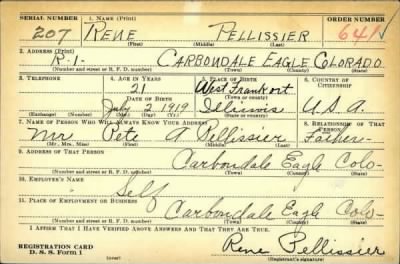 SERIAL NUMBER 1. NAME (Print) ORDER NUMBER
207 RENE PELLISSIER 641
(First) (Middle) (Last)
2. ADDRESS (Print)
R-1- CARBONDALE EAGLE COLORADO
(Number and street or R. F. D. number) (Town) (County) (State)
3. TELEPHONE 4. AGE IN YEARS 5. PLACE OF BIRTH 6. COUNTRY OF CITIZENSHIP
21 West Frankfort
DATE OF BIRTH (Town or county)
July 2 1919 Illinois U.S.A.
(Exchange) (Number) (Mo.) (Day) (Yr.) (State or country)
7. NAME OF PERSON WHO WILL ALWAYS KNOW YOUR ADDRESS 8. RELATIONSHIP OF THAT PERSON
Mr Pete A Pellissier Father-
(Mr., Mrs., Miss) (First) (Middle) (Last)
9. ADDRESS OF THAT PERSON
Carbondale Eagle Colo-
(Number and street or R. F. D. number) (Town) (County) (State)
10. EMPLOYER'S NAME
Self
11. PLACE OF EMPLOYMENT OR BUSINESS
Carbondale Eagle Colo-
(Number and street or R. F. D. number) (Town) (County) (State)
I AFFIRM THAT I HAVE VERIFIED ABOVE ANSWERS AND THAT THEY ARE TRUE.
REGISTRATION CARD
D. S. S. Form 1 (over) Rene Pellissier
(Registrant's signature)